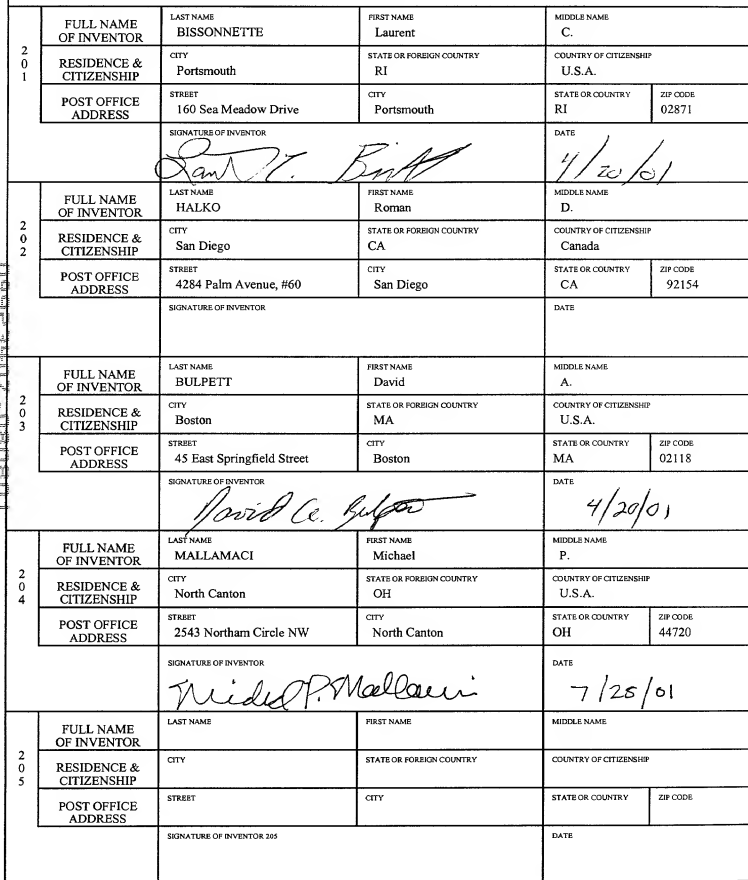 FULL NAME OF INVENTOR LAST NAME BISSONNETTE FIRST NAME Laurent MIDDLE NAME C.
201 RESIDENCE & CITIZENSHIP CITY Portsmouth STATE OR FOREIGN COUNTRY RI COUNTRY OF CITIZENSHIP U.S.A.
POST OFFICE ADDRESS STREET 160 Sea Meadow Drive CITY Portsmouth STATE OR COUNTRY RI ZIP CODE 02871
SIGNATURE OF INVENTOR DATE 4/20/01
FULL NAME OF INVENTOR LAST NAME HALKO FIRST NAME Roman MIDDLE NAME D.
202 RESIDENCE & CITIZENSHIP CITY San Diego STATE OR FOREIGN COUNTRY CA COUNTRY OF CITIZENSHIP Canada
POST OFFICE ADDRESS STREET 4284 Palm Avenue, #60 CITY San Diego STATE OR COUNTRY CA ZIP CODE 92154
SIGNATURE OF INVENTOR DATE
FULL NAME OF INVENTOR LAST NAME BULPETT FIRST NAME David MIDDLE NAME A.
203 RESIDENCE & CITIZENSHIP CITY Boston STATE OR FOREIGN COUNTRY MA COUNTRY OF CITIZENSHIP U.S.A.
POST OFFICE ADDRESS STREET 45 East Springfield Street CITY Boston STATE OR COUNTRY MA ZIP CODE 02118
SIGNATURE OF INVENTOR David A. DATE 4/20/01
FULL NAME OF INVENTOR LAST NAME MALLAMACI FIRST NAME Michael MIDDLE NAME P.
204 RESIDENCE & CITIZENSHIP CITY North Canton STATE OR FOREIGN COUNTRY OH COUNTRY OF CITIZENSHIP U.S.A.
POST OFFICE ADDRESS STREET 2543 Northam Circle NW CITY North Canton STATE OR COUNTRY OH ZIP CODE 44720
SIGNATURE OF INVENTOR DATE 7/25/01
FULL NAME OF INVENTOR LAST NAME FIRST NAME MIDDLE NAME
205 RESIDENCE & CITIZENSHIP CITY STATE OR FOREIGN COUNTRY COUNTRY OF CITIZENSHIP
POST OFFICE ADDRESS STREET CITY STATE OR COUNTRY ZIP CODE
SIGNATURE OF INVENTOR 205 DATE